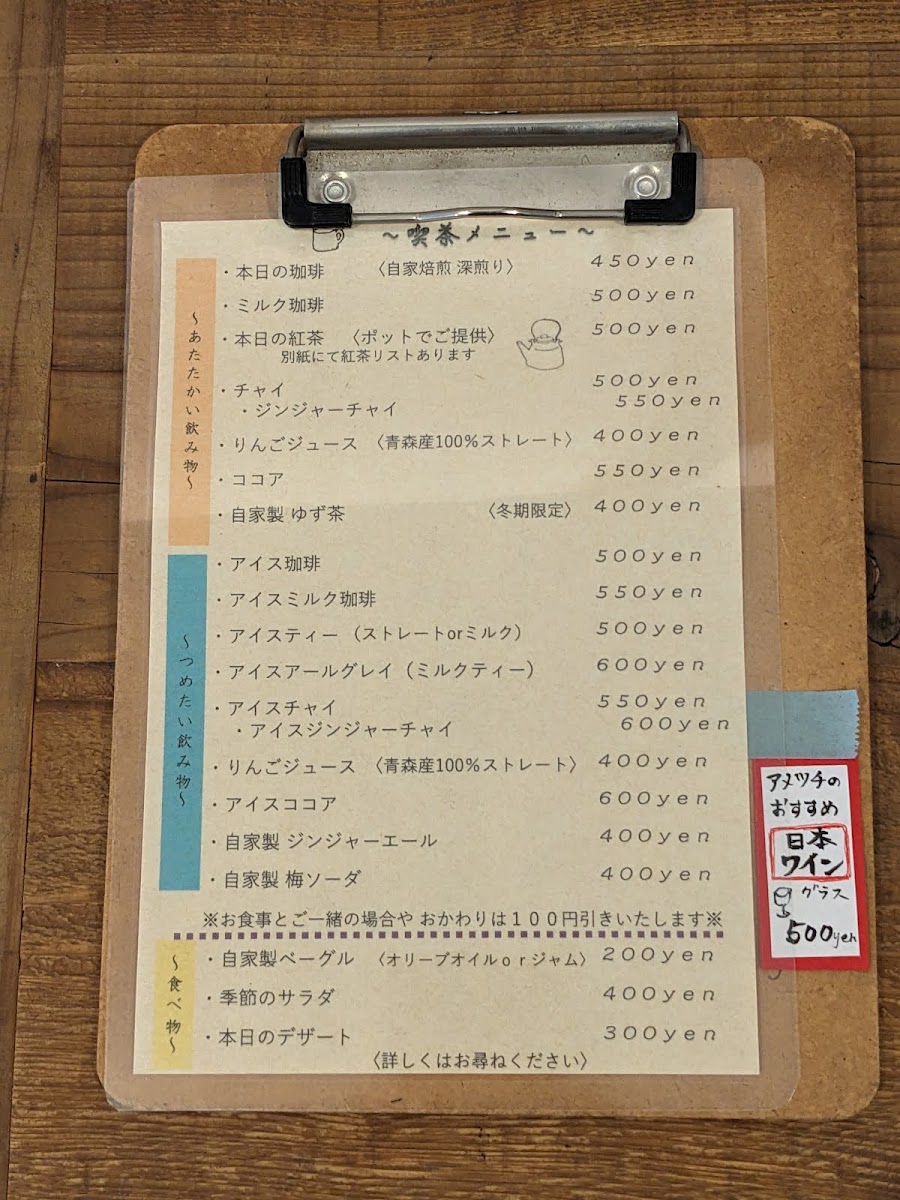 ～喫茶メニュー～
～あたたかい飲み物～
・本日の珈琲 〈自家焙煎 深煎り〉 450yen
・ミルク珈琲 500yen
・本日の紅茶 〈ポットでご提供〉 500yen
別紙にて紅茶リストあります
・チャイ 500yen
・ジンジャーチャイ 550yen
・りんごジュース 〈青森産100%ストレート〉 400yen
・ココア 550yen
・自家製 ゆず茶 〈冬期限定〉 400yen
～つめたい飲み物～
・アイス珈琲 500yen
・アイスミルク珈琲 550yen
・アイスティー （ストレートorミルク） 500yen
・アイスアールグレイ（ミルクティー） 600yen
・アイスチャイ 550yen
・アイスジンジャーチャイ 600yen
・りんごジュース 〈青森産100%ストレート〉 400yen
・アイスココア 600yen
・自家製 ジンジャーエール 400yen
・自家製 梅ソーダ 400yen
※お食事とご一緒の場合や おかわりは１００円引きいたします※
～食べ物～
・自家製ベーグル 〈オリーブオイルｏｒジャム〉 200yen
・季節のサラダ 400yen
・本日のデザート 300yen
〈詳しくはお尋ねください〉
アメツチの
おすすめ
日本
ワイン
グラス
500yen